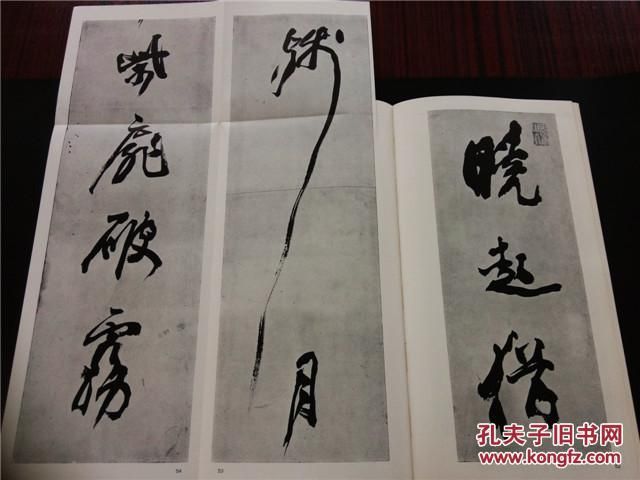 曉起猶
殘月
柴扉破霧
54
53
孔夫子旧书网
www.kongfz.com